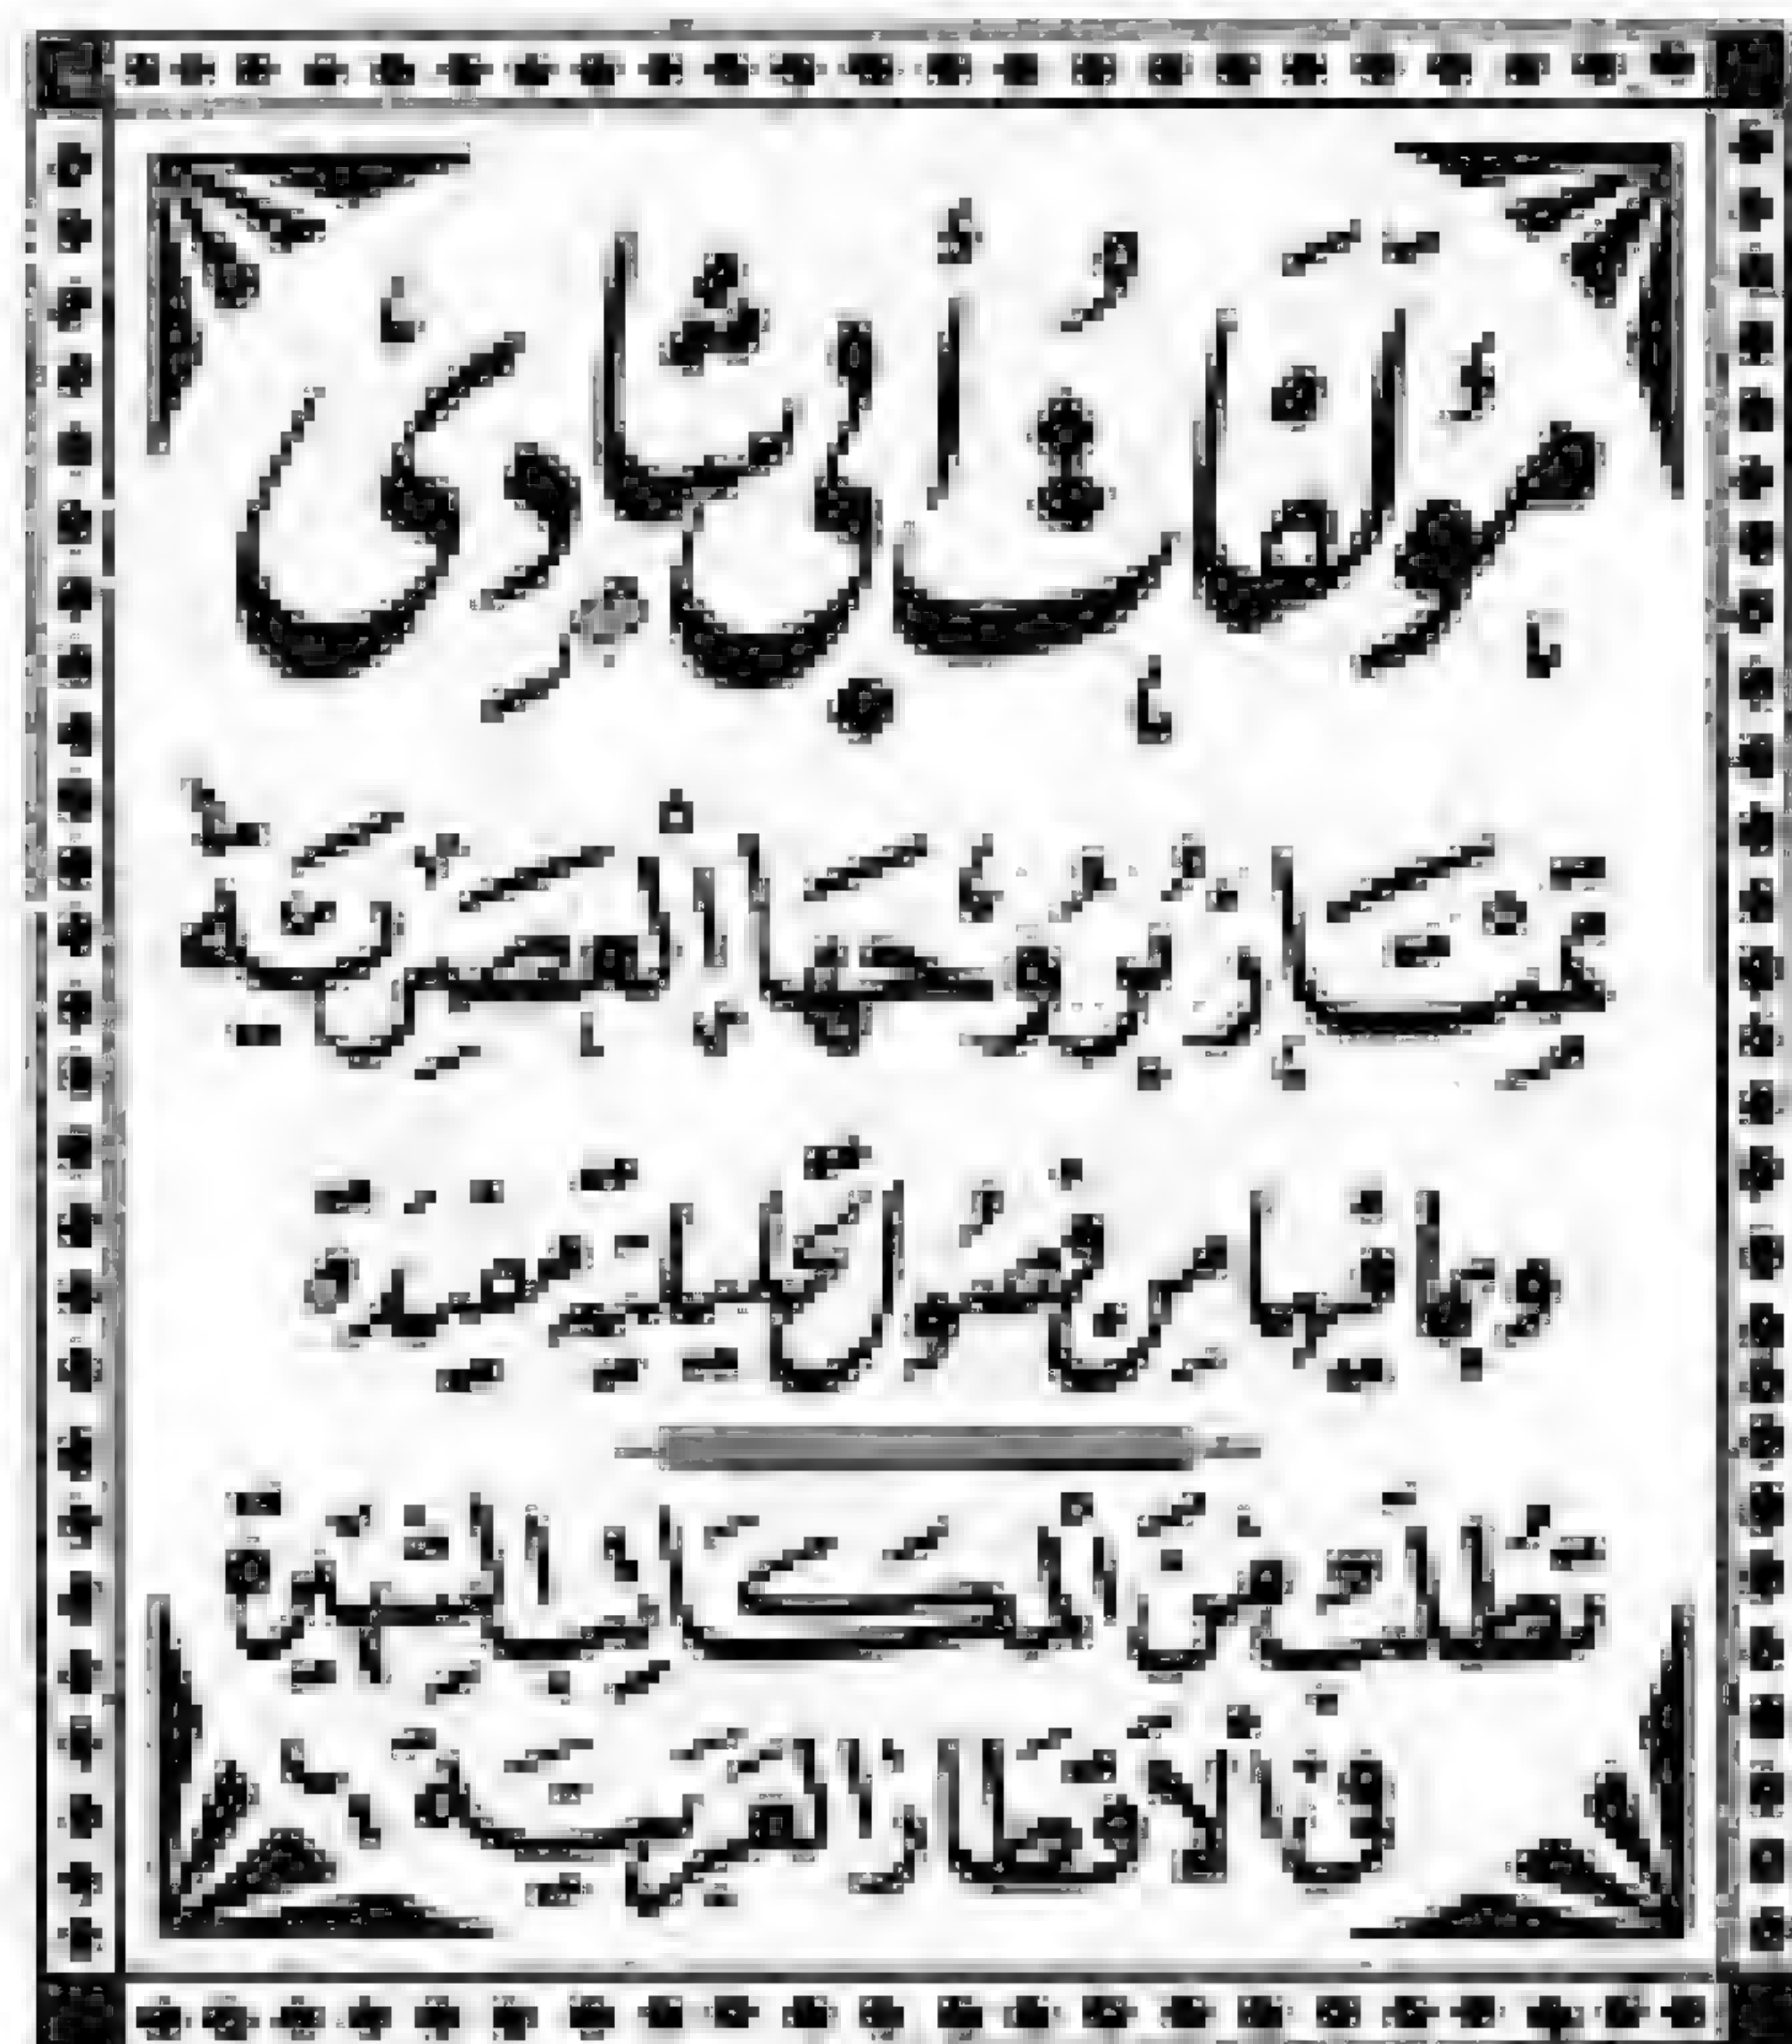 مُؤَلَّفَاتُ أَبِي شَادِي
تَمْتَازُ بِرُوحِهَا الْعَصْرِيَّةِ
وبما فيها من فُصُول تحليلية مفيدة
تُطْلَبُ مِنَ المَكَاتِب الشَّهِيرَة
فِي الأَقْطَارِ العَرَبِيَّة